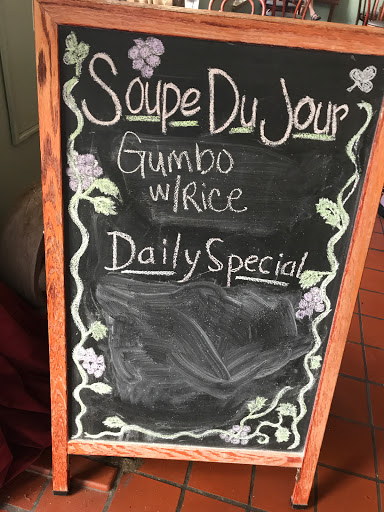 Soupe Du Jour
Gumbo
w/Rice
Daily Special